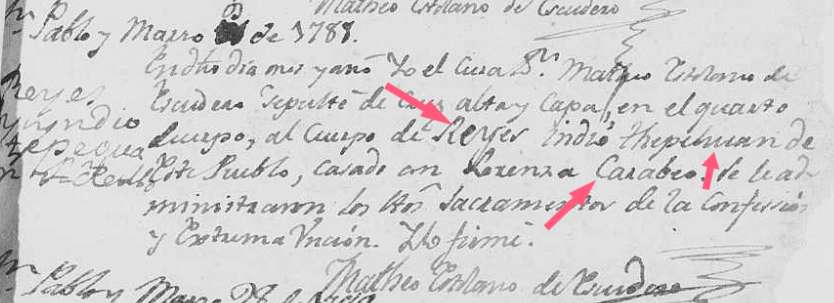 Matheo Solano de Escudero
Sn. Pablo y Marzo de 1788.
En dho dia mes y año Yo el Cura Dn. Matheo Solano de
Escudero sepulté de Cruz alta y Capa, en el quarto
Cuerpo, al Cuerpo de Reyes Indio thepehuan de
Este Pueblo, casado con Lorenza Carabeo. Se le ad
ministraron los Stos Sacramentos de la Confession
y Extrema Uncion. Y lo firmé.
Matheo Solano de Escudero
Sn. Pablo y Marzo 28
Reyes
yndio
tepegua